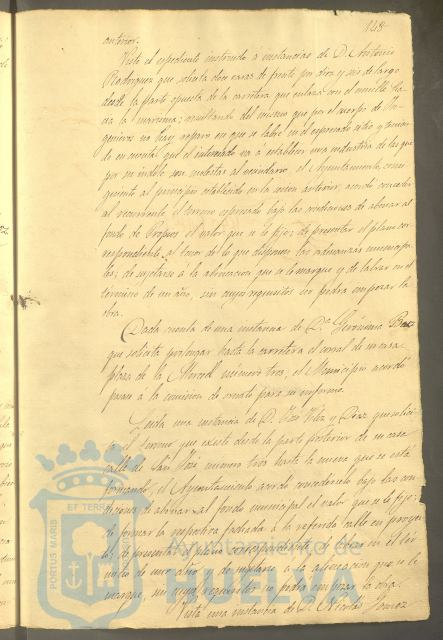 148
anterior.
Visto el espediente instruido á instancias de D. Antonio
Rodriguez que solicita doce varas de frente por diez y seis de largo
desde la parte opuesta de la carretera que enlaza con el muelle ha-
cia la marisma; resultando del mismo que por el cuerpo de In-
genieros no hay reparo en que se labre en el espresado sitio y tenien-
do en cuenta que el interesado va á establecer una industria de las que
por su indole son molestas al vecindario, el Ayuntamiento, consi-
guiente al principio establecido en la sesion anterior, acordó conceder
al recurrente el terreno espresado bajo las condiciones de abonar al
fondo de Propios el valor que se le fije; de presentar el plano cor-
respondiente al tenor de lo que disponen las ordenanzas municipa-
les; de sujetarse á la alineacion que se le marque y de labrar en el
término de un año, sin cuyos requisitos no podrá empezar la
obra.
Dada cuenta de una instancia de D.ª Gerónima
que solicita prolongar hasta la carretera el corral de su casa
plaza de la Merced número tres, el Municipio acordó
pasar á la comision de ornato para su informe.
Leida una instancia de D. José Vela y Diaz que solici-
ta el terreno que existe desde la parte posterior de su casa
calle de San José numero tres hasta la nueva que se está
formando, el Ayuntamiento acordó concederlo bajo las con-
diciones de abonar al fondo municipal el valor que se le fije;
de formar la respectiva fachada á la referida calle en proyec-
to; de presentar el plano correspondiente; de labrar en el tér-
mino de un año y de sujetarse á la alineacion que se le
marque, sin cuyos requisitos no podrá empezar la obra.
Vista una instancia de D. Nicolás Gomez
PORTUS MARIS ET TERRAE
Ayuntamiento de
HUELVA